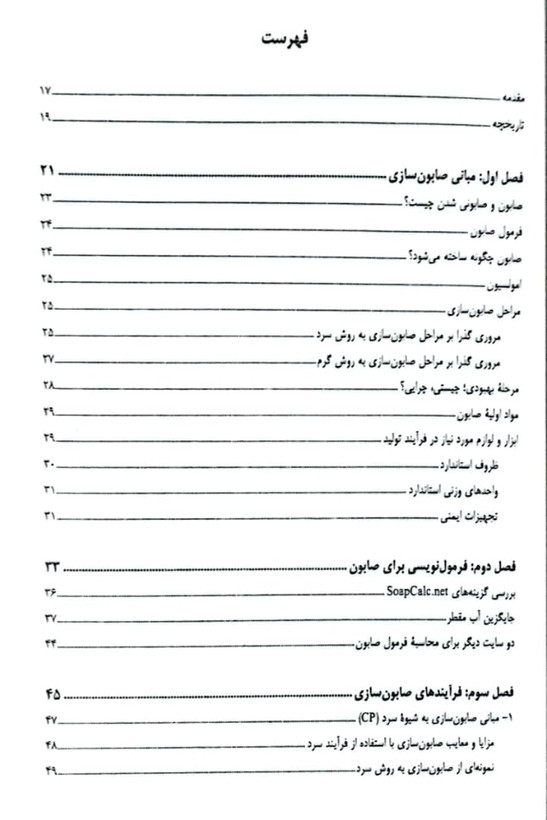 فهرست
مقدمه ۱۷
تاریخچه ۱۹
فصل اول: مبانی صابون‌سازی ۲۱
صابون و صابونی شدن چیست؟ ۲۳
فرمول صابون ۲۴
صابون چگونه ساخته می‌شود؟ ۲۴
امولسیون ۲۵
مراحل صابون‌سازی ۲۵
مروری گذرا بر مراحل صابون‌سازی به روش سرد ۲۵
مروری گذرا بر مراحل صابون‌سازی به روش گرم ۲۷
مرحلهٔ بهبودی؛ چیستی، چرایی؟ ۲۸
مواد اولیهٔ صابون ۲۹
ابزار و لوازم مورد نیاز در فرآیند تولید ۲۹
ظروف استاندارد ۳۰
واحدهای وزنی استاندارد ۳۱
تجهیزات ایمنی ۳۱
فصل دوم: فرمول‌نویسی برای صابون ۳۳
بررسی گزینه‌های SoapCalc.net ۳۶
جایگزین آب مقطر ۳۷
دو سایت دیگر برای محاسبهٔ فرمول صابون ۴۴
فصل سوم: فرآیندهای صابون‌سازی ۴۵
۱- مبانی صابون‌سازی به شیوهٔ سرد (CP) ۴۷
مزایا و معایب صابون‌سازی با استفاده از فرآیند سرد ۴۸
نمونه‌ای از صابون‌سازی به روش سرد ۴۹